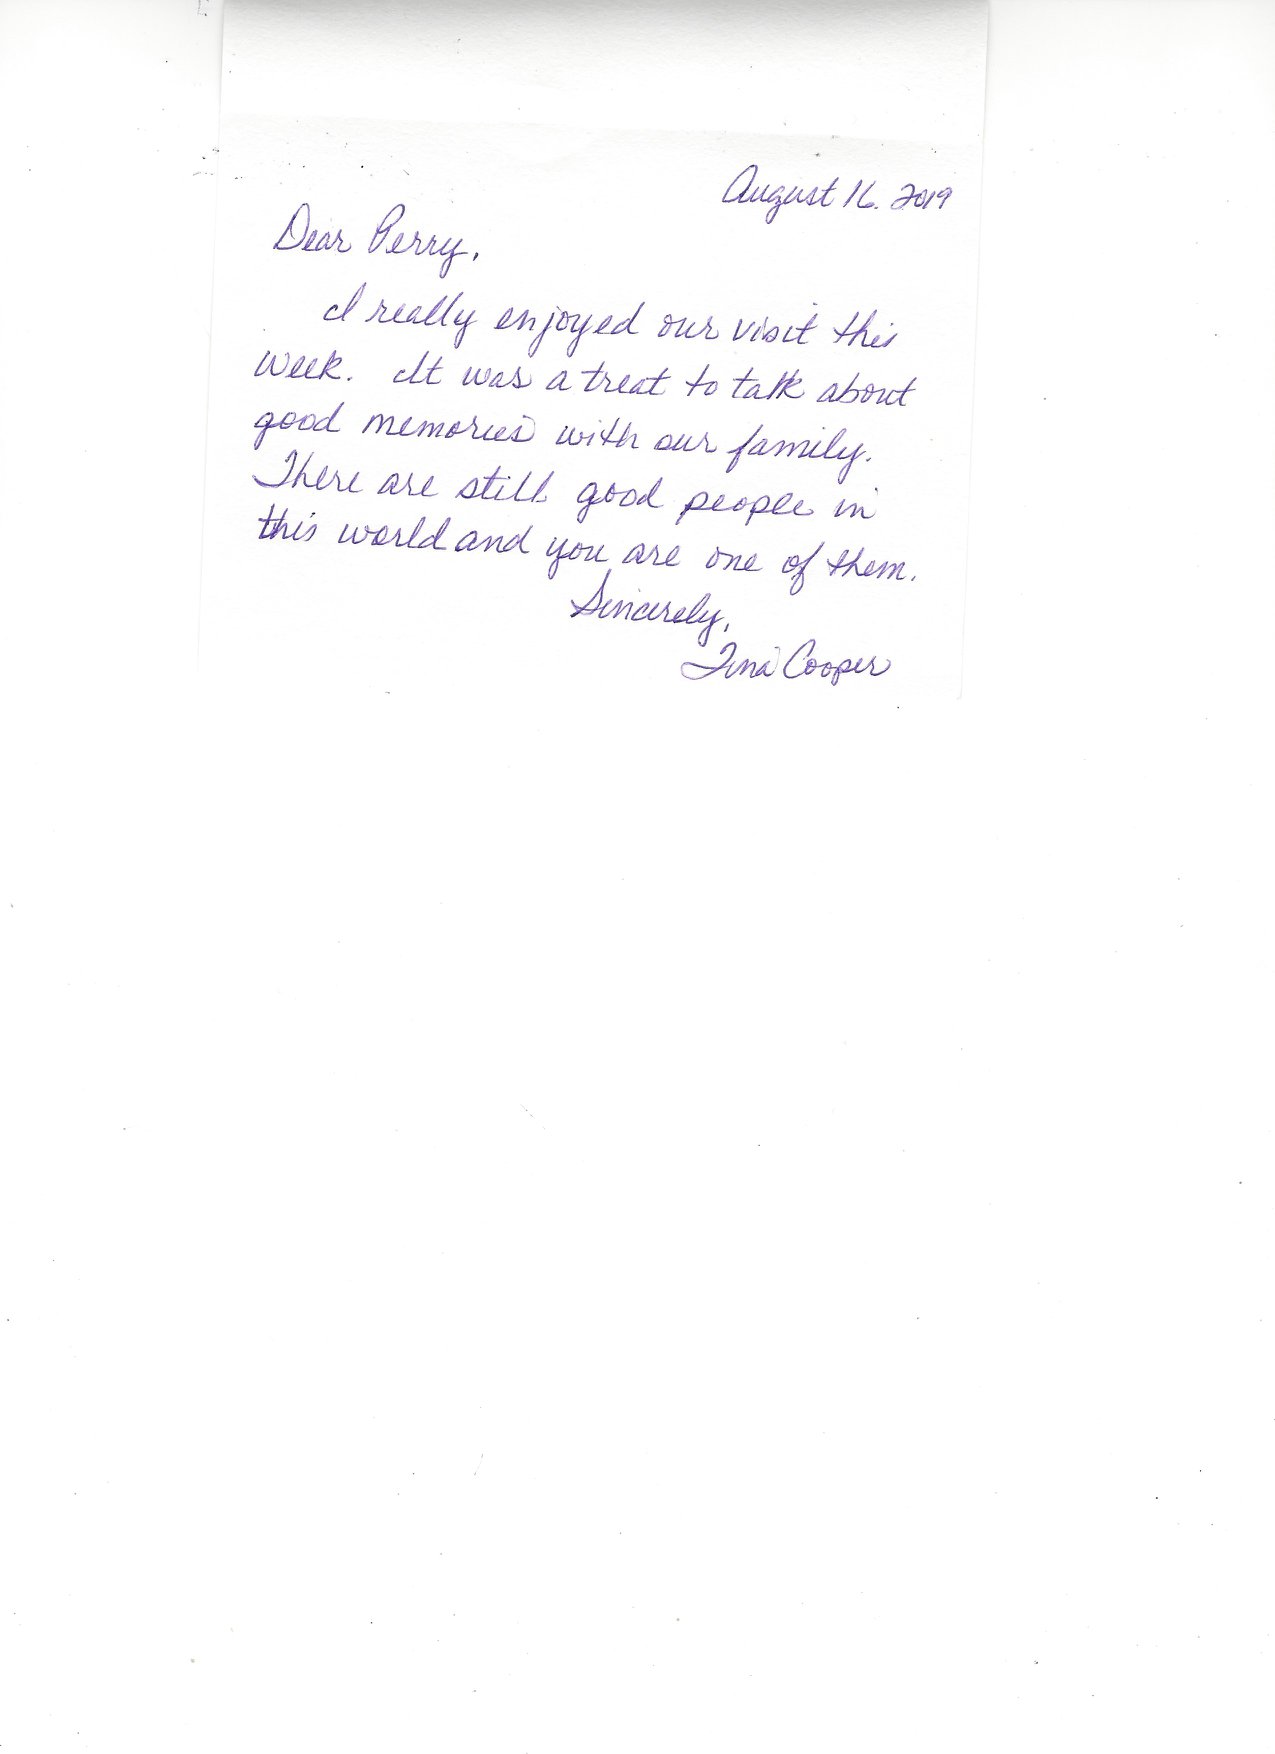 August 16. 2019
Dear Perry,
I really enjoyed our visit this
week. It was a treat to talk about
good memories with our family.
There are still good people in
this world and you are one of them.
Sincerely,
Tina Cooper